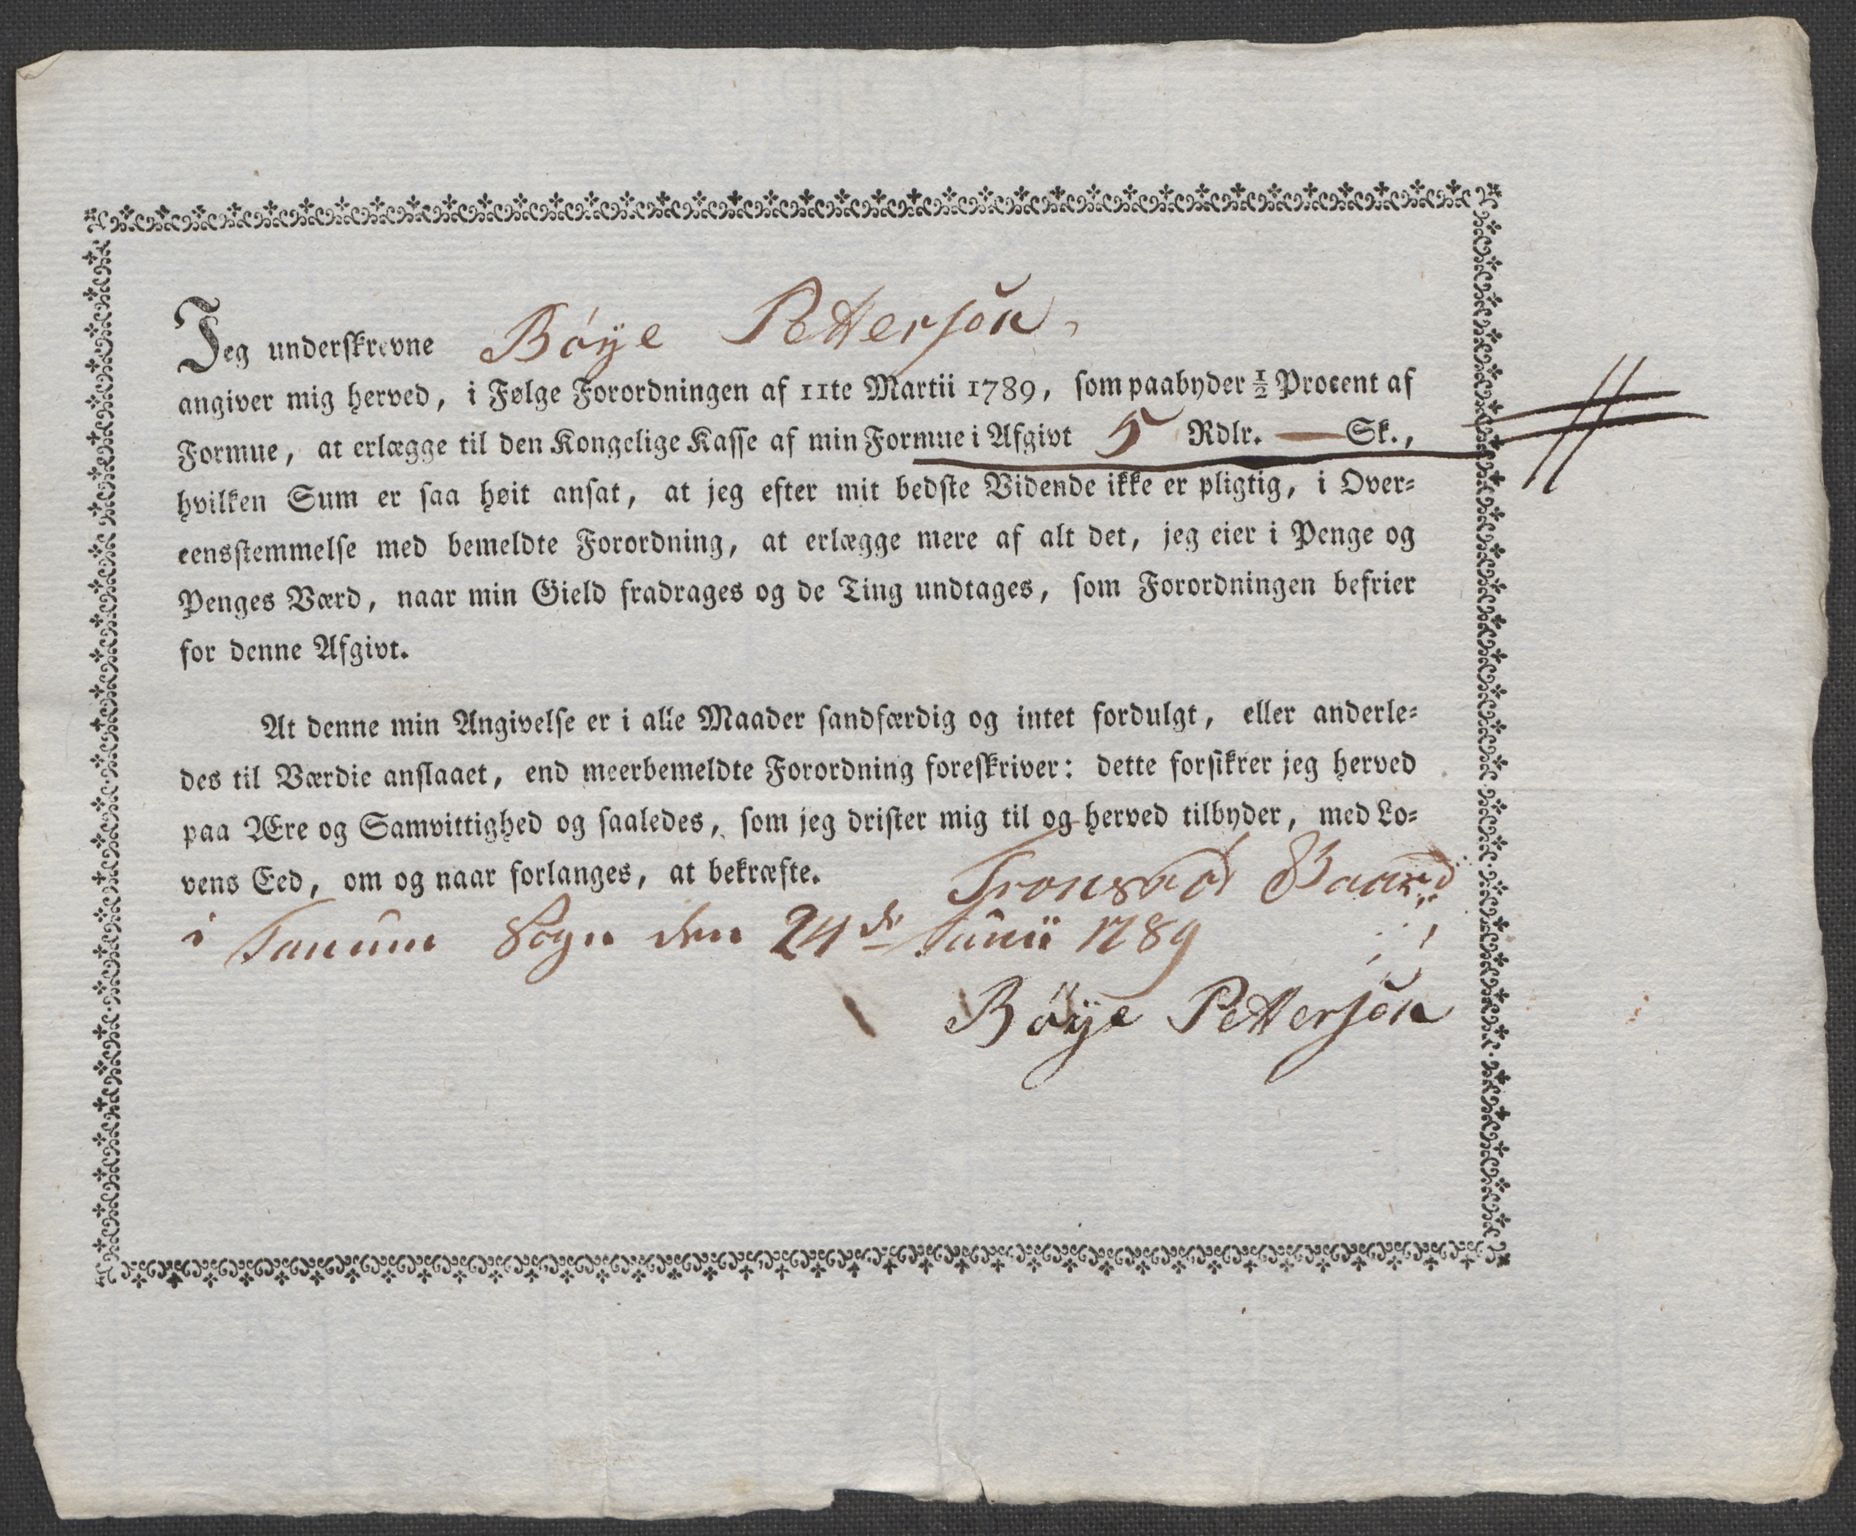 Jeg underskrevne Bøÿe Pettersøn
angiver mig herved, i Følge Forordningen af 11te Martii 1789, som paabyder ½ Procent af
Formue, at erlægge til den Kongelige Kasse af min Formue i Afgivt 5 Rdlr. — Sk.,
hvilken Sum er saa høit ansat, at jeg efter mit bedste Vidende ikke er pligtig, i Over=
eensstemmelse med bemeldte Forordning, at erlægge mere af alt det, jeg eier i Penge og
Penges Værd, naar min Gield fradrages og de Ting undtages, som Forordningen befrier
for denne Afgivt.
At denne min Angivelse er i alle Maader sandfærdig og intet fordulgt, eller anderle=
des til Værdie anslaaet, end meerbemeldte Forordning foreskriver: dette forsikrer jeg herved
paa Ære og Samvittighed og saaledes, som jeg drister mig til og herved tilbyder, med Lo=
vens Eed, om og naar forlanges, at bekræfte. Gaard
i Tanum Sogn den 24de Junii 1789
Bøÿe Pettersøn